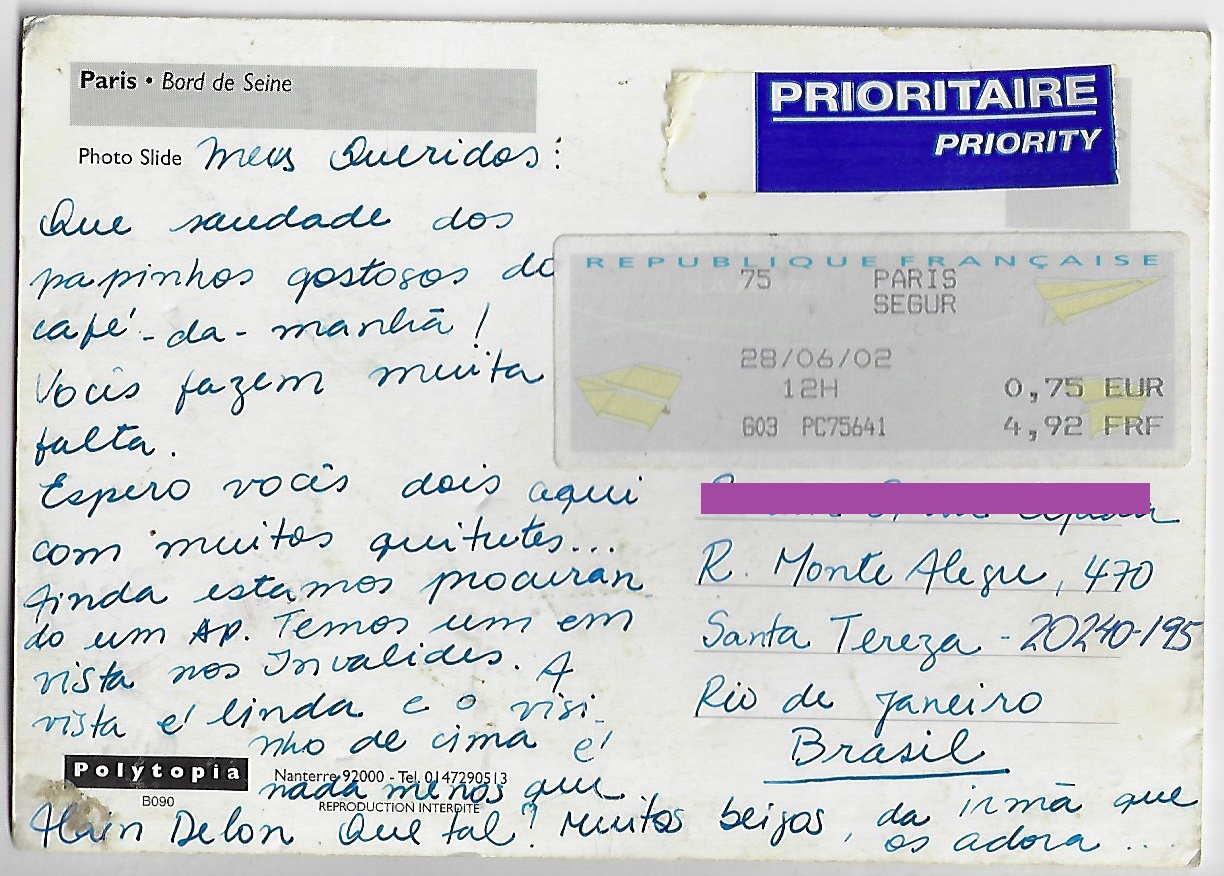 Paris • Bord de Seine
Photo Slide
PRIORITAIRE
PRIORITY
REPUBLIQUE FRANÇAISE
75 PARIS
SEGUR
28/06/02
12H 0,75 EUR
G03 PC75641 4,92 FRF
Meus Queridos:
Que saudade dos
papinhos gostosos do
café-da-manhã!
Vocês fazem muita
falta.
Espero vocês dois aqui
com muitos quitutes...
Ainda estamos procuran
do um AP. Temos um em
vista nos Invalides. A
vista é linda e o visi-
nho de cima é
nada menos que
Alain Delon. Que tal? Muitos beijos, da irmã que
os adora...
R. Monte Alegre, 470
Santa Tereza - 20240-195
Rio de Janeiro
Brasil
Polytopia
B090
Nanterre 92000 - Tel. 0147290513
REPRODUCTION INTERDITE